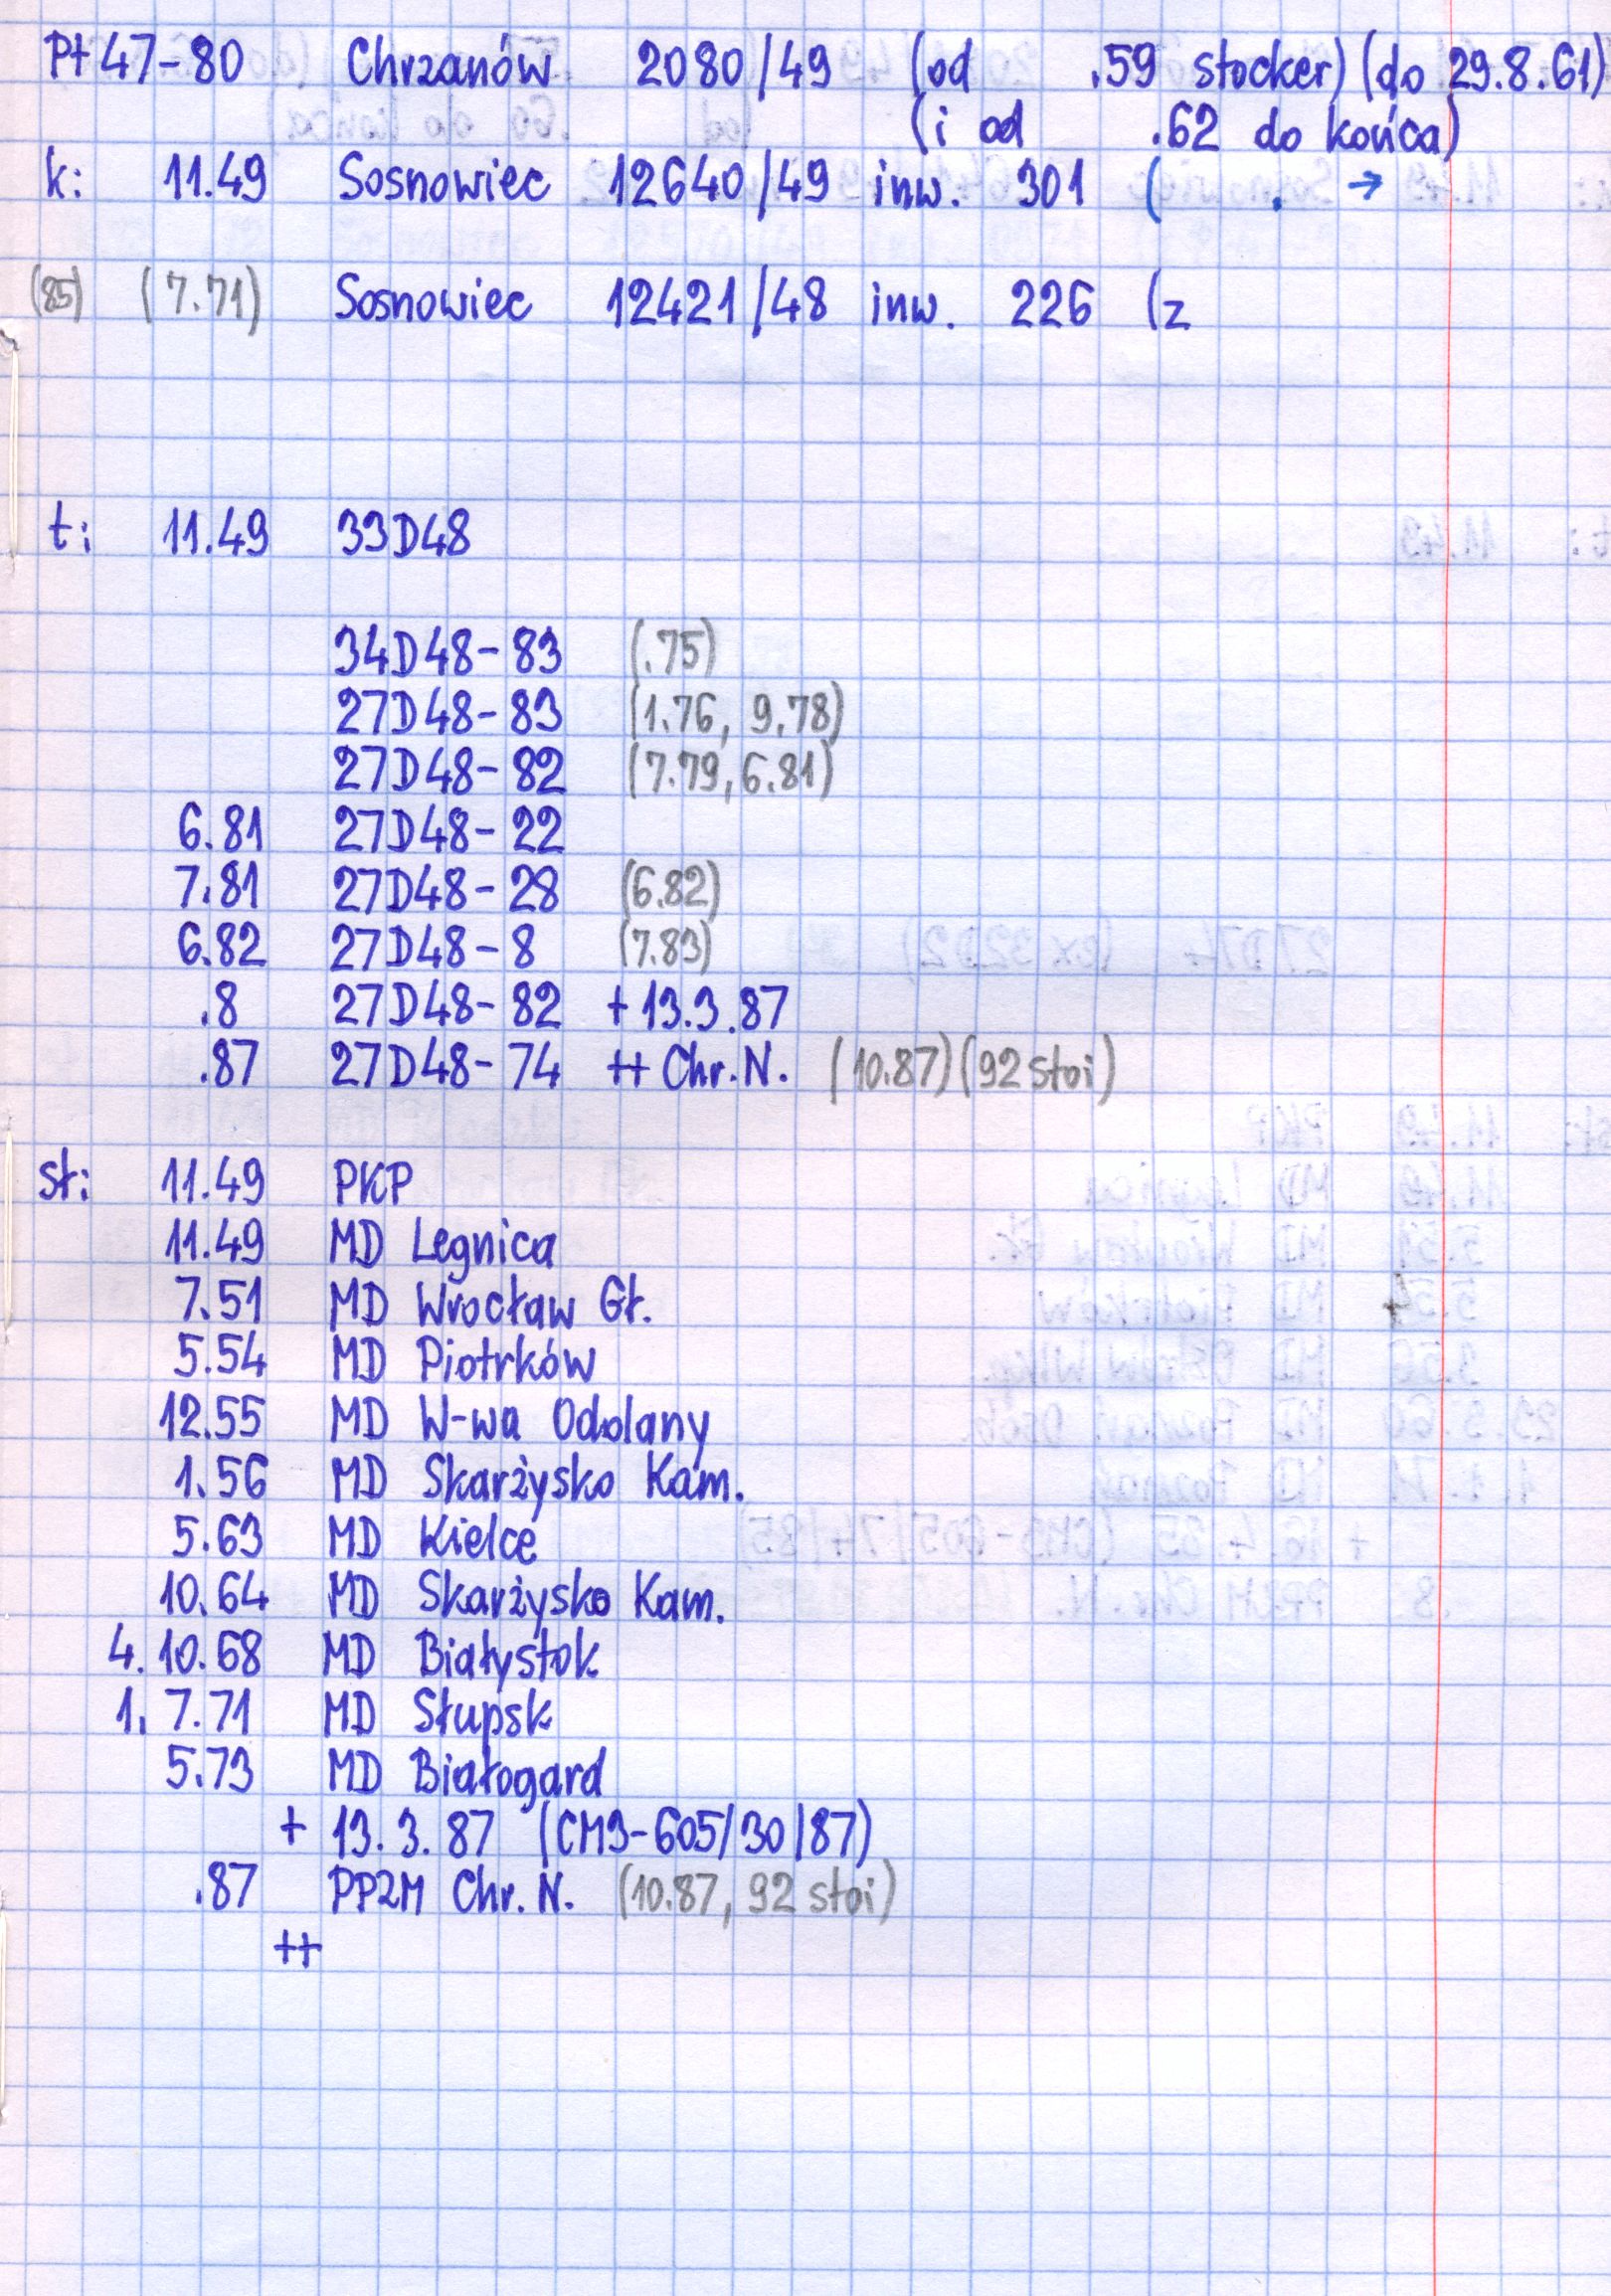 Pt 47-80 Chrzanów 2080/49 (od .59 stocker) (do 29.8.61)
(i od .62 do końca)
k: 11.49 Sosnowiec 12640/49 inw. 301 ( . →
(85) (7.71) Sosnowiec 12421/48 inw. 226 (z
t: 11.49 33D48
34D48-83 (.75)
27D48-83 (1.76, 9.78)
27D48-82 (7.79, 6.81)
6.81 27D48-22
7.81 27D48-28 (6.82)
6.82 27D48-8 (7.83)
.8 27D48-82 + 13.3.87
.87 27D48-74 ++ Chr.N. (10.87) (92 stoi)
st: 11.49 PKP
11.49 MD Legnica
7.51 MD Wrocław Gł.
5.54 MD Piotrków
12.55 MD W-wa Odolany
1.56 MD Skarżysko Kam.
5.63 MD Kielce
10.64 MD Skarżysko Kam.
4.10.68 MD Białystok
1.7.71 MD Słupsk
5.73 MD Białogard
+ 13.3.87 (CM3-605/30/87)
.87 PP2M Chr. N. (10.87, 92 stoi)
++